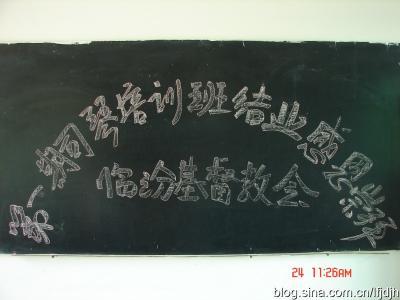 第一期司琴培训班结业感恩崇拜
临汾基督教会
24 11:26AM
blog.sina.com.cn/lfjdjh